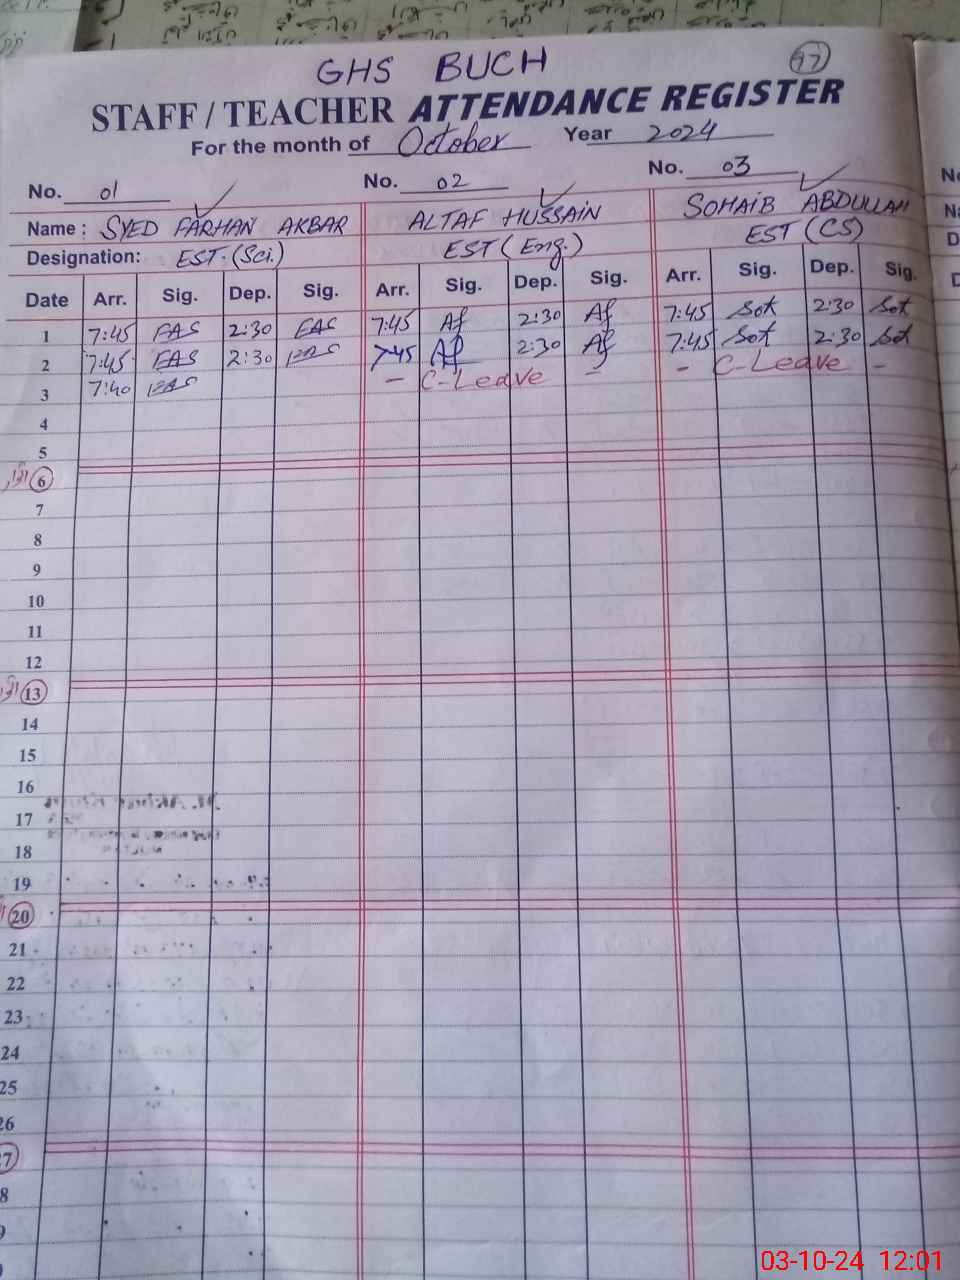 GHS BUCH
97
STAFF / TEACHER ATTENDANCE REGISTER
For the month of October Year 2024
No. 01 No. 02 No. 03
Name : SYED FARHAN AKBAR ALTAF HUSSAIN SOHAIB ABDULLAH
Designation: EST. (Sci.) EST (Eng.) EST (CS)
Date Arr. Sig. Dep. Sig. Arr. Sig. Dep. Sig. Arr. Sig. Dep. Sig.
1 7:45 FAS 2:30 FAS 7:45 Af 2:30 Af 7:45 Sot 2:30 Sot
2 7:45 FAS 2:30 FAS 7:45 Af 2:30 Af 7:45 Sot 2:30 Sot
3 7:40 FAS - C-Leave - - C-Leave -
4
5
6
7
8
9
10
11
12
13
14
15
16
17
18
19
20
21
22
23
24
25
26
27
03-10-24 12:01